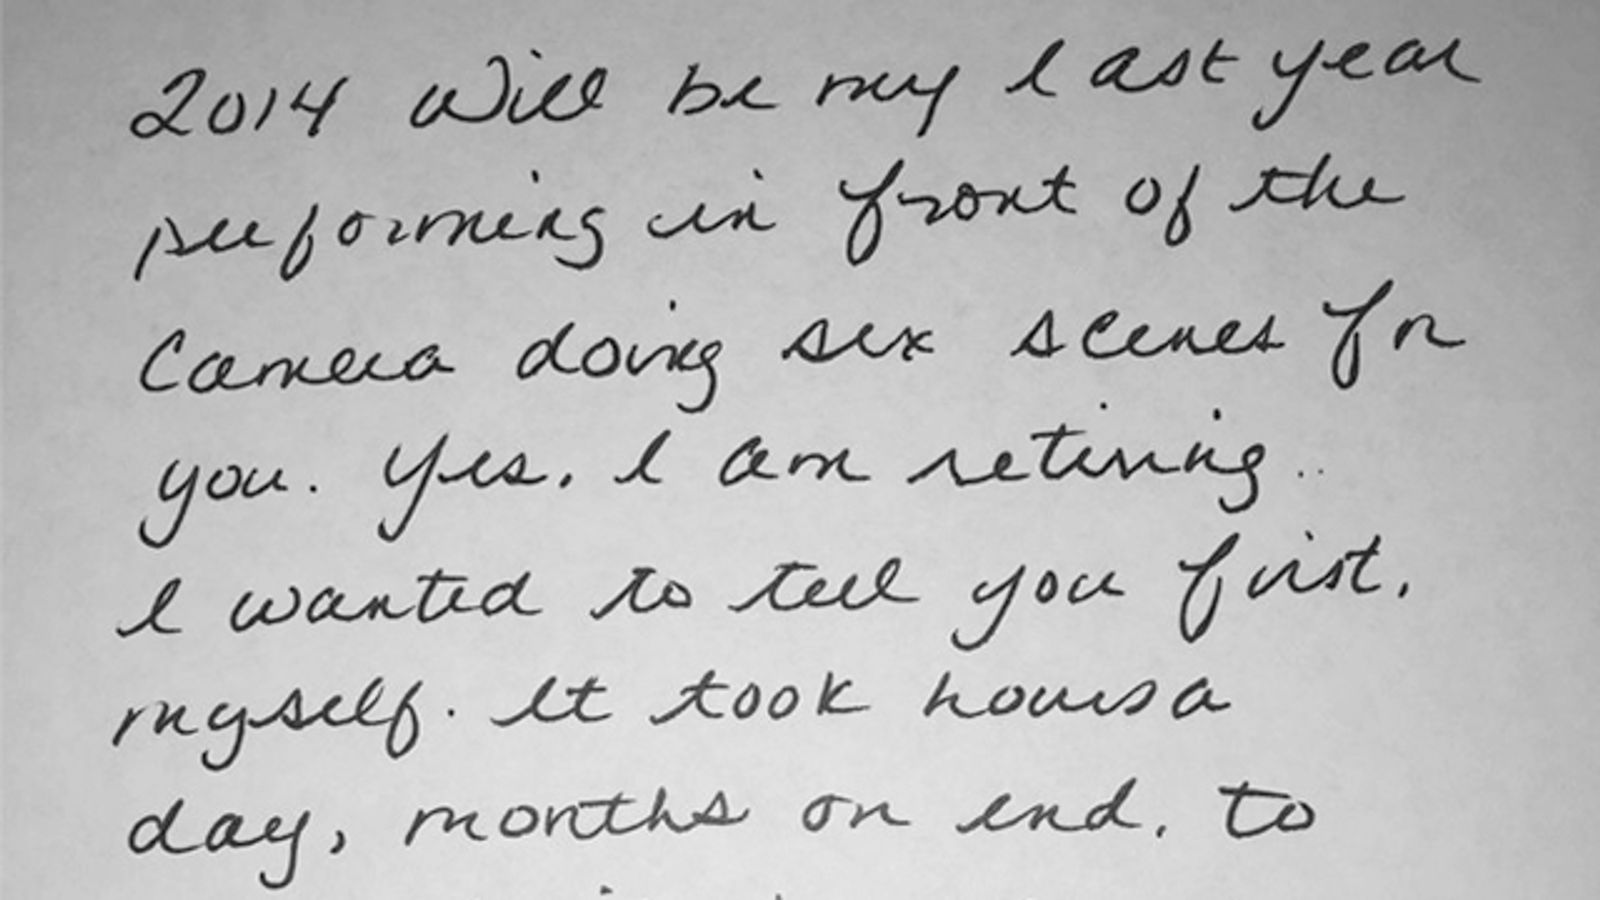 2014 will be my last year
performing in front of the
Camera doing sex scenes for
you. Yes. I am retiring..
I wanted to tell you first.
myself. It took hours a
day, months on end. to